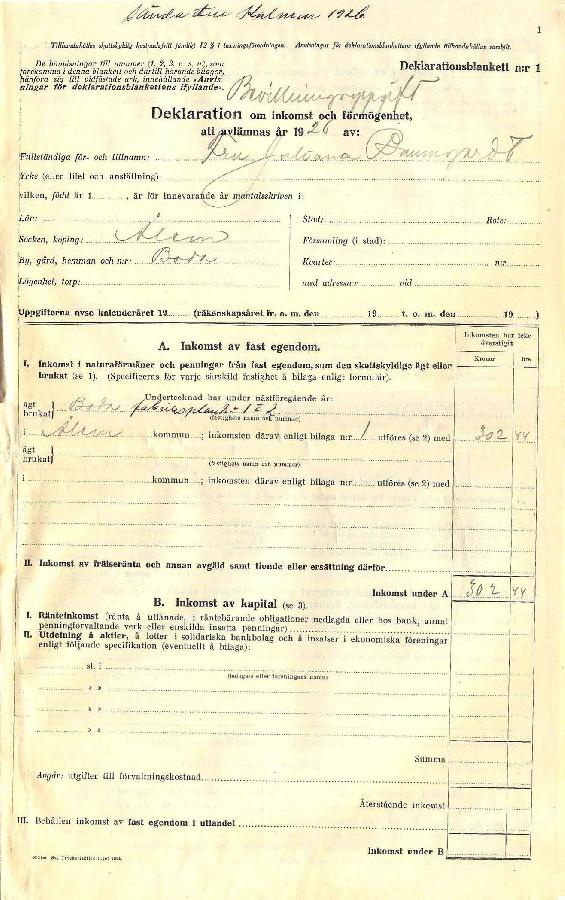 Sända till Kalmar 1926
1
Tillhandahålles skattskyldig kostnadsfritt jämlikt 12 § 1 taxeringsförordningen. Anvisningar för deklarationsblankettens ifyllande tillhandahållas särskilt.
De hänvisningar till nummer (1, 2, 3, o. s. v.), som
förekomma i denna blankett och därtill hörande bilagor,
hänföra sig till vidfästade ark, innehållande »Anvis-
ningar för deklarationsblankettens ifyllande».
Deklarationsblankett n:r 1
Bevillningsuppgift
Deklaration om inkomst och förmögenhet,
att avlämnas år 1926 av:
Fullständiga för- och tillnamn: Fru Baumgardt
Yrke (eller titel och anställning)
vilken, född år 1 , är för innevarande år mantalsskriven i:
Län:
Socken, köping: Ålem
By, gård, hemman och n:r: Boda
Lägenhet, torp:
Stad: Rote:
Församling (i stad):
Kvarter n:r
med adress: vid
Uppgifterna avse kalenderåret 19 (räkenskapsåret fr. o. m. den 19 t. o. m. den 19 )
A. Inkomst av fast egendom.
Inkomsten har icke
överstigit
Kronor öre
I. Inkomst i naturaförmåner och penningar från fast egendom, som den skattskyldige ägt eller
brukat (se 1). (Specificeras för varje särskild fastighet å bilaga enligt formulär).
Undertecknad har under nästföregående år:
ägt } Boda 1 & 2
brukat} (fastighets namn och nummer)
i Ålem kommun ; inkomsten därav enligt bilaga n:r 1 utföres (se 2) med 302 44
ägt }
brukat} (fastighets namn och nummer)
i kommun ; inkomsten därav enligt bilaga n:r utföres (se 2) med
II. Inkomst av frälseränta och annan avgäld samt tionde eller ersättning därför
Inkomst under A 302 44
B. Inkomst av kapital (se 3).
I. Ränteinkomst (ränta å utlånade, i räntebärande obligationer nedlagda eller hos bank, annat
penningförvaltande verk eller enskilda insatta penningar)
II. Utdelning å aktier, å lotter i solidariska bankbolag och å insatser i ekonomiska föreningar
enligt följande specifikation (eventuellt å bilaga):
st. i
(bolagens eller föreningens namn)
» »
» »
» »
Summa
Avgår: utgifter till förvaltningskostnad
Återstående inkomst
III. Behållen inkomst av fast egendom i utlandet
Inkomst under B